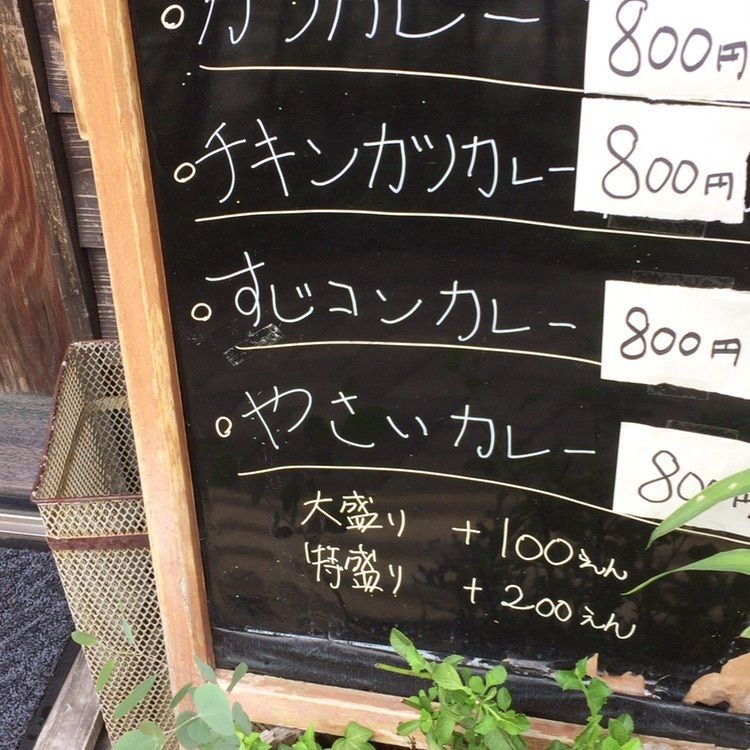 カツカレー 800円
チキンカツカレー 800円
すじコンカレー 800円
やさいカレー 800
大盛り +100えん
特盛り +200えん